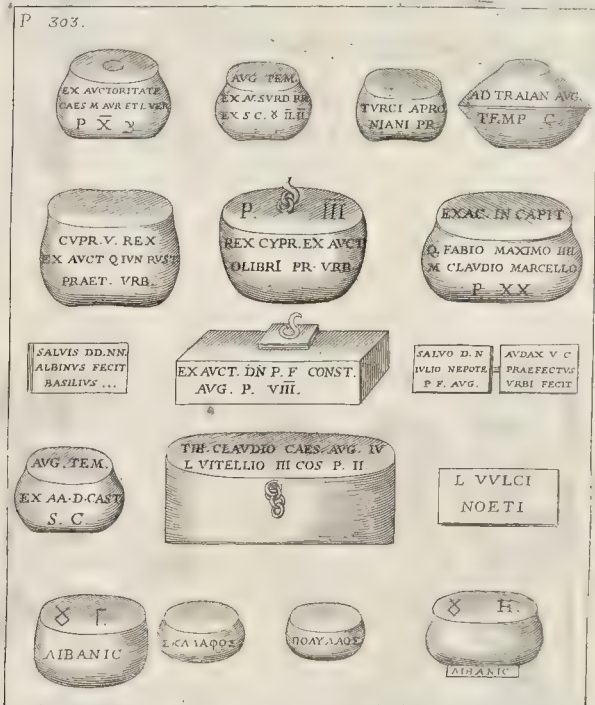 P 303.
EX AVCTORITATE
CAES M AVR ET L VER
P X̅
AVG TEM.
EX AV. SVRD PR
EX S C. Ȣ II. II.
TVRCI APRO
NIANI PR
AD TRAIAN AVG.
TEMP C.
CVPR. V. REX
EX AVCT Q IVN RVST
PRAET. VRB.
P. III
REX CYPR. EX AVCT
OLIBRI PR. VRB
EXAC. IN CAPIT
Q. FABIO MAXIMO IIII
M CLAVDIO MARCELLO
P XX
SALVIS DD.NN.
ALBINVS FECIT
BASILIVS ...
EX AVCT. DN̅ P. F CONST.
AVG. P. VIII.
SALVO D. N
IVLIO NEPOTE
P F. AVG.
AVDAX V C
PRAEFECTVS
VRBI FECIT
AVG. TEM.
EX AA. D. CAST
S. C
TIB. CLAVDIO CAES. AVG. IV
L VITELLIO III COS P. II
L VVLCI
NOETI
Ȣ Γ.
ΛΙΒΑΝΙC
ΠΟΛΥΛΑΟΣ
Ȣ H.
ΛΙΒΑΝΙC